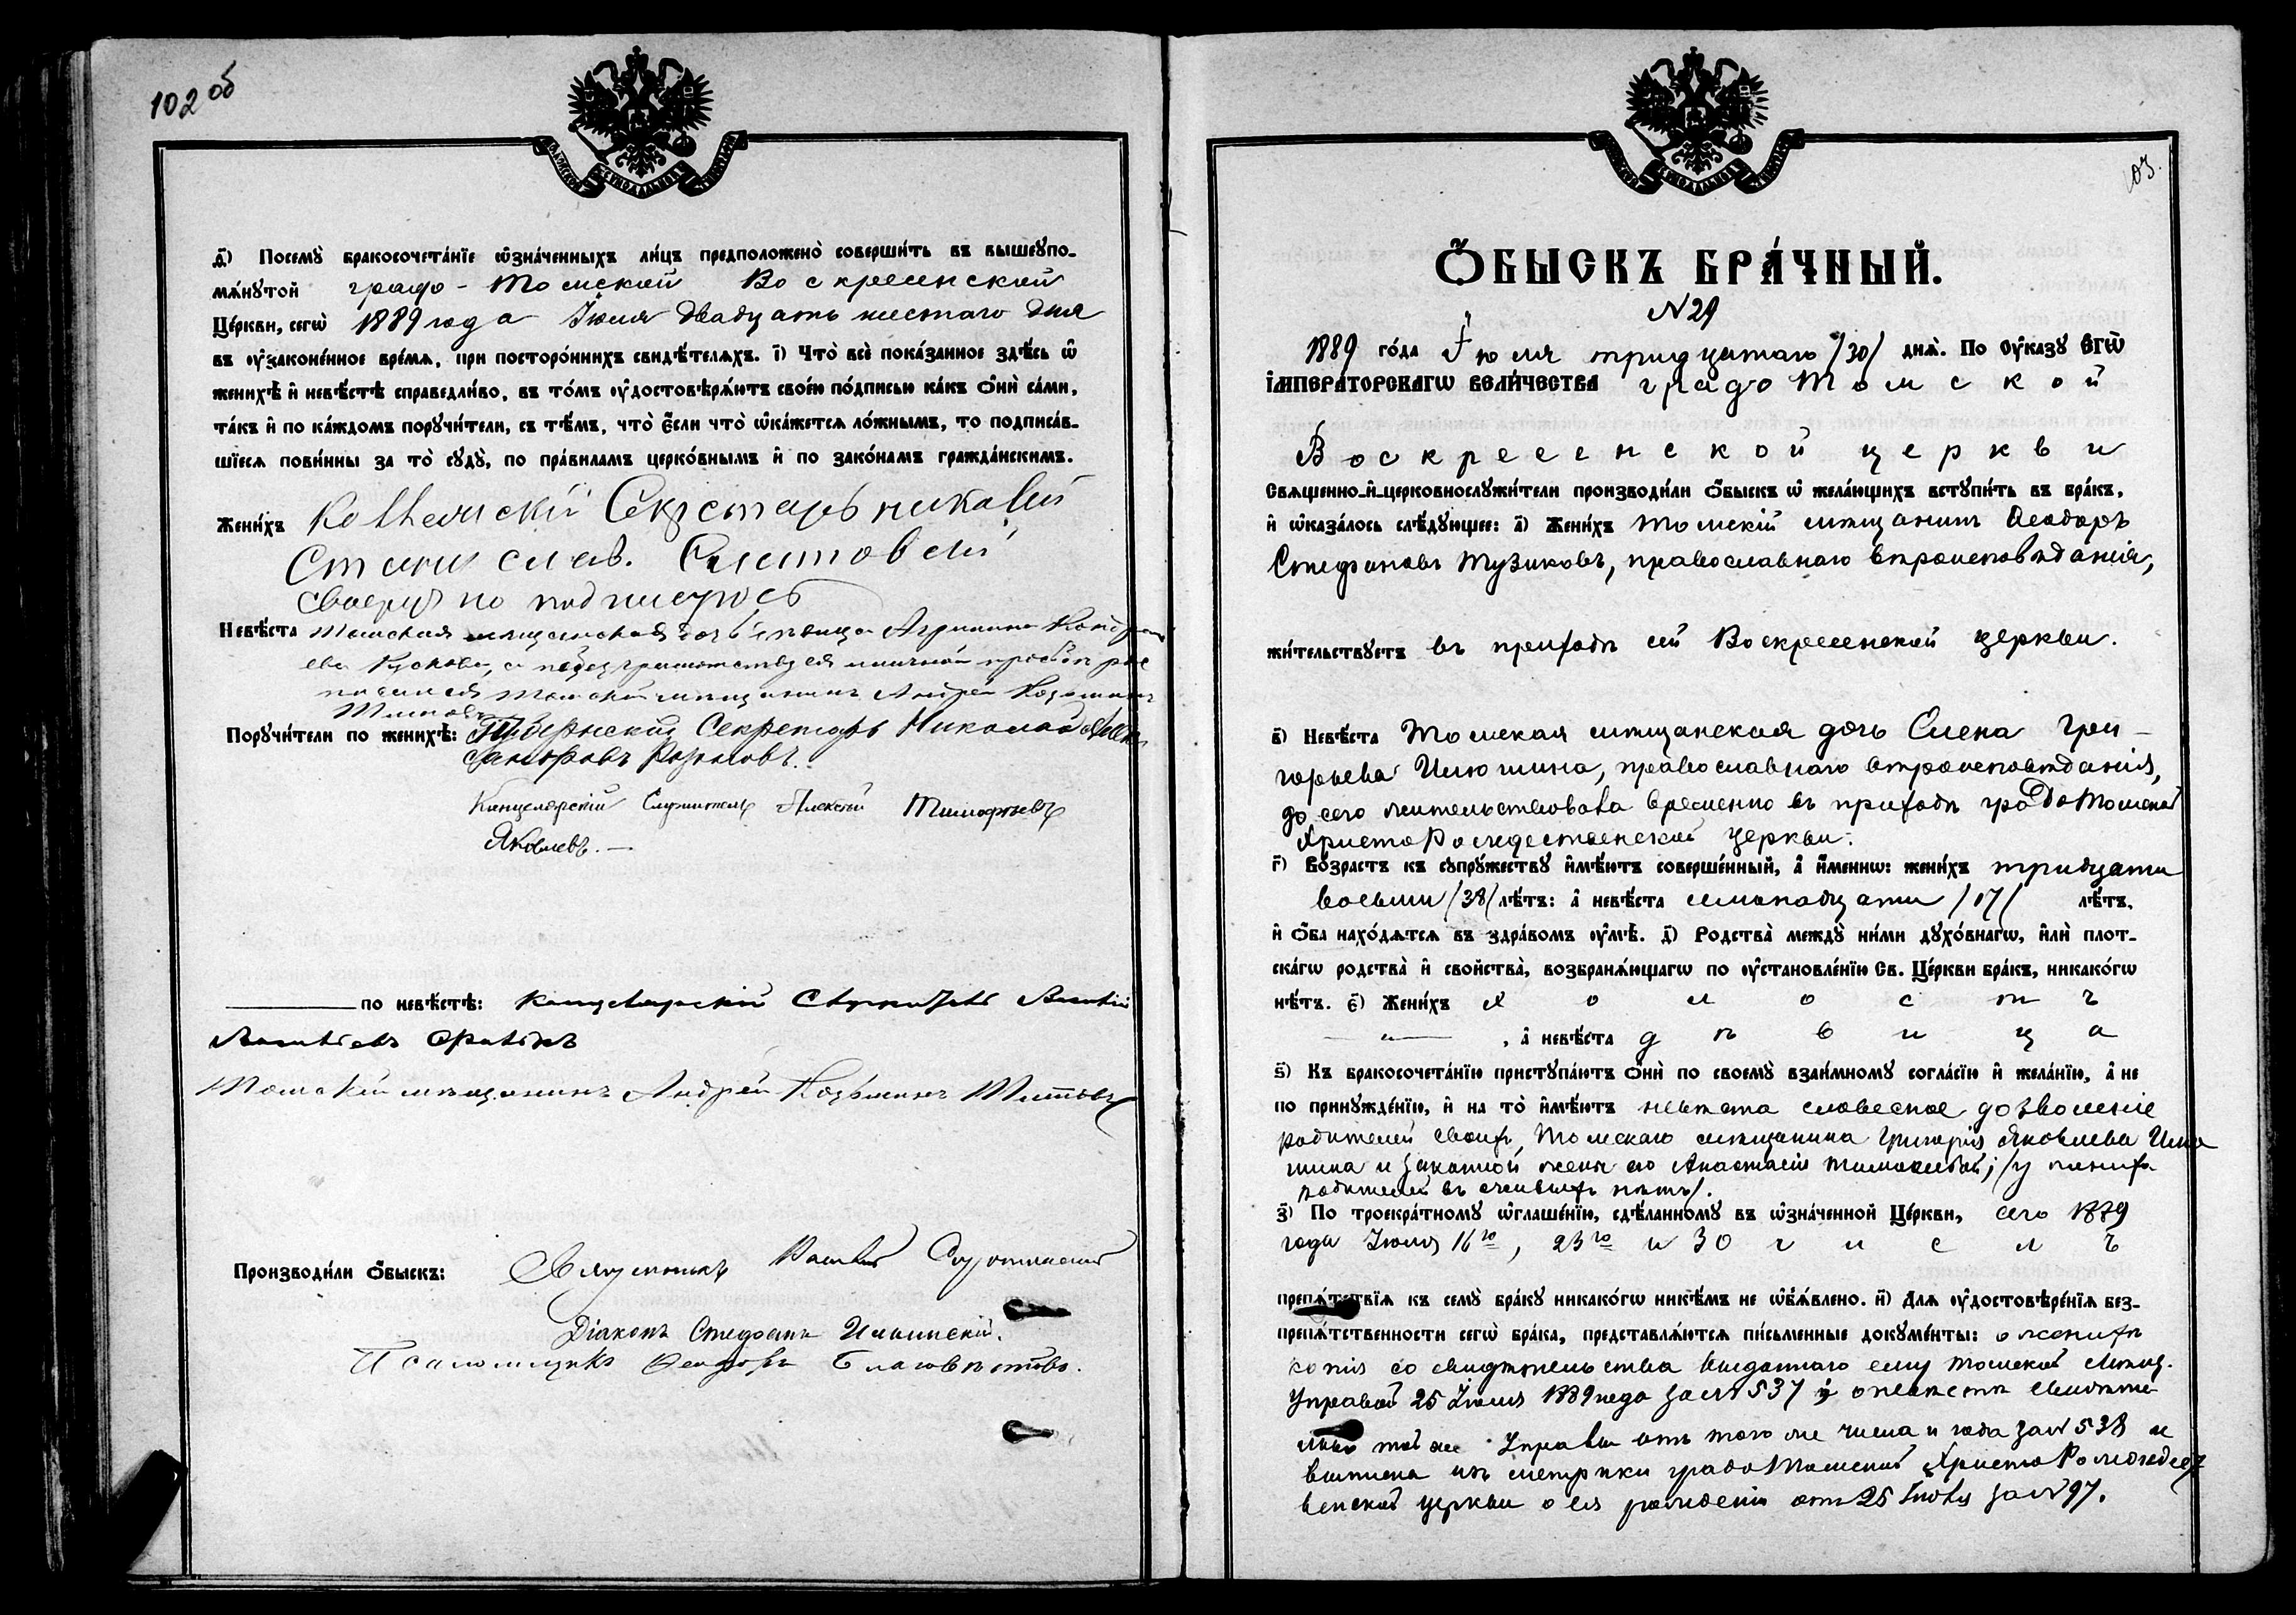 102 об
д҃) Посемꙋ̀ бракосочета́нїе ѡ҆зна́ченныхъ ли́цъ предположено̀ соверши́ть въ вышеꙋпо-
мѧ́нꙋтой градо-Томской Воскресенской
Це́ркви, сегѡ̀ 1889 года Іюля двадцать шестаго дня
въ ᲂу҆зако́ненное вре́мѧ, при посторо́ннихъ свидѣ́телѧхъ. і҃) Что̀ всѐ пока́занное здѣ́сь ѡ҆
женихѣ̀ и҆ невѣ́стѣ справедли́во, въ то́мъ ᲂу҆достовѣрѧ́ютъ свое́ю по́дписью ка́къ ѻ҆нѝ са́ми,
та́къ и҆ по ка́ждомъ порꙋчи́тели, съ тѣ́мъ, что̀ є҆́сли что̀ ѡ҆ка́жетсѧ ло́жнымъ, то подписа́в-
шїесѧ пови́нны за то̀ сꙋдꙋ̀, по пра́виламъ церко́внымъ и҆ по зако́намъ гражда́нскимъ.
Жени́хъ Секретарь
Станислав.
Невѣ́ста Томская мещанская дочь девица
Томскій мѣщанинъ Андрей Козьминъ
Титовъ
Порꙋчи́тели по женихѣ̀: Губернскій Секретарь Николай Алек
сандровъ
Канцелярскій Служитель Алексѣй Тимофѣевъ
Яковлевъ. —
по невѣ́стѣ: Канцелярскій Служитель
Томскій мѣщанинъ Андрей Козьминъ Титовъ
Производи́ли ѻ҆́быскъ: Священникъ
Діаконъ Стефанъ Ильинскій.
Псаломщикъ Ѳеодоръ Благовѣстовъ.
103.
Ѻ҆́БЫСКЪ БРА́ЧНЫЙ.
N 29
1889 го́да Іюля тридцатаго /30/ днѧ̀. По Оу҆ка́зꙋ Є҆ГѠ̀
І҆МПЕРА́ТОРСКАГѠ ВЕЛИ́ЧЕСТВА градо Томской
Воскресенской церкви
Свѧще́нно-и҆-церковнослꙋжи́тели производи́ли ѻ҆́быскъ ѡ҆ жела́ющихъ встꙋпи́ть въ бра́къ,
и҆ ѡ҆каза́лось слѣ́дꙋющее: а҃) Жени́хъ Томскій мѣщанинъ Ѳеодоръ
Стефановъ Тузиковъ, православнаго вѣроисповѣданія,
жи́тельствꙋетъ въ приходѣ сей Воскресенской церкви.
в҃) Невѣ́ста Томская мѣщанская дочь Елена Гри-
горьева Илюшина, православнаго вѣроисповѣданія,
до сего жительствовала временно въ приходѣ градоТомской
ХристоРождественской церкви.
г҃) Во́зрастъ къ сꙋпрꙋ́жествꙋ и҆мѣ́ютъ соверше́нный, а҆ и҆́менно: жени́хъ тридцати
восьми /38/ лѣ́тъ: а҆ невѣ́ста семнадцати /17/ лѣ́тъ.
и҆ ѻ҆́ба нахо́дѧтсѧ въ здра́вомъ ᲂу҆мѣ̀. д҃) Родства̀ междꙋ̀ ни́ми дꙋхо́внагѡ, и҆лѝ плот-
ска́гѡ родства̀ и҆ свойства̀, возбранѧ́ющагѡ по ᲂу҆становле́нїю Св. Це́ркви бра́къ, никако́гѡ
нѣ́тъ. є҃) Жени́хъ холостъ
, а҆ невѣ́ста дѣвица
ѕ҃) Къ бракосочета́нїю пристꙋпа́ютъ ѻ҆нѝ по своемꙋ̀ взаи́мномꙋ согла́сїю и҆ жела́нїю, а҆ не
по принꙋжде́нїю, и҆ на то̀ и҆мѣ́ютъ невѣста словесное дозволеніе
родителей своихъ, Томскаго мѣщанина Григорія Яковлева Илю
шина и законной жены его Анастасіи; /у жениха
родителей въ живыхъ нѣтъ/.
з҃) По троекра́тномꙋ ѡ҆глаше́нїю, сдѣ́ланномꙋ въ ѡ҆зна́ченной Це́ркви, сего 1889
года Іюля 16го, 23го и 30 числъ
препѧ́тствїѧ къ семꙋ̀ бра́кꙋ никако́гѡ никѣ́мъ не ѡ҆б̾ѧ́влено. и҃) Длѧ ᲂу҆достовѣре́нїѧ без-
препѧ́тственности сегѡ̀ бра́ка, представлѧ́ютсѧ пи́сьменные докꙋме́нты: о женихѣ
копія со свидѣтельства выданнаго ему Томской Мѣщ.
Управой 25 Іюля 1889 года за N 537 и о невѣстѣ свидѣте-
льство той же Управы отъ того же числа и года за N 538 и
выписка изъ метрики градоТомской ХристоРождест
венской церкви о ея рожденіи отъ 25 Іюля за N 97.